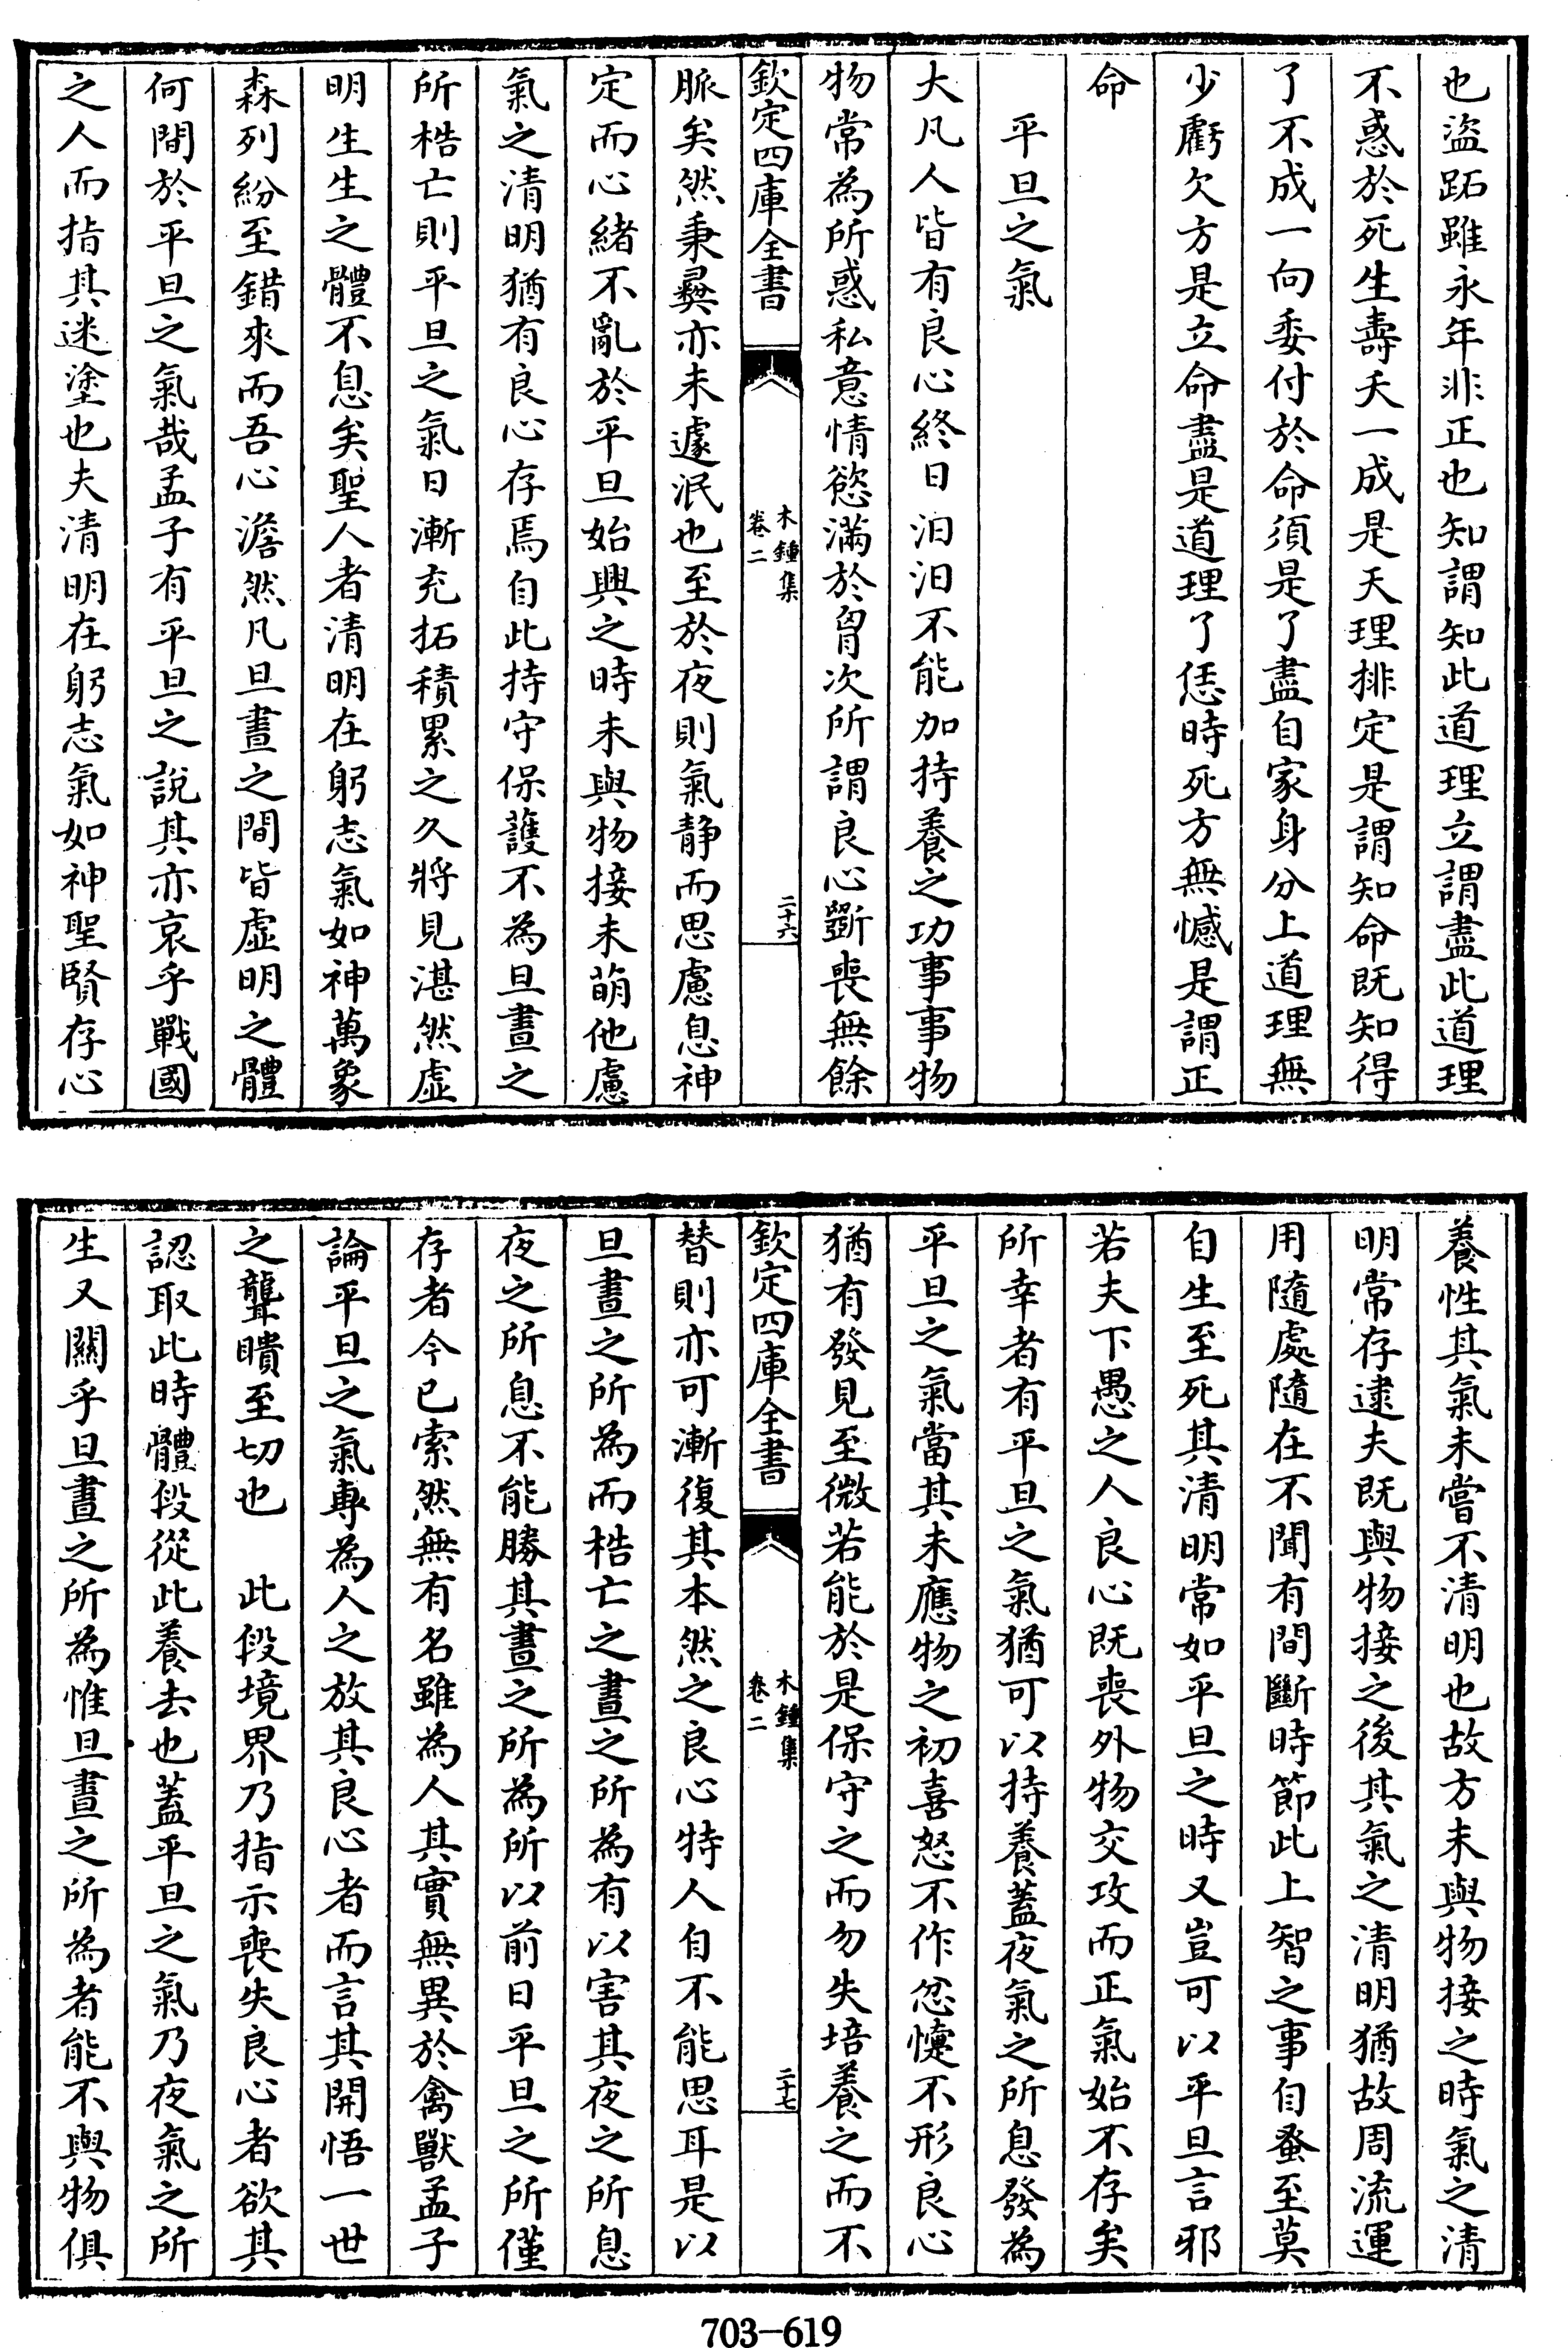 也盜跖雖永年非正也知謂知此道理立謂盡此道理
不惑於死生壽夭一成是天理排定是謂知命既知得
了不成一向委付於命須是了盡自家身分上道理無
少虧欠方是立命盡是道理了恁時死方無憾是謂正
命
平旦之氣
大凡人皆有良心終日汩汩不能加持養之功事事物
物常為所惑私意情慾滿於胷次所謂良心斲喪無餘
欽定四庫全書
木鍾集
卷二
二十六
脈矣然秉彞亦未遽泯也至於夜則氣静而思慮息神
定而心緒不亂於平旦始興之時未與物接未萌他慮
氣之清明猶有良心存焉自此持守保護不為旦晝之
所梏亡則平旦之氣日漸充拓積累之久將見湛然虛
明生生之體不息矣聖人者清明在躬志氣如神萬象
森列紛至錯來而吾心澹然凡旦晝之間皆虛明之體
何間於平旦之氣哉孟子有平旦之說其亦哀乎戰國
之人而指其迷塗也夫清明在躬志氣如神聖賢存心
養性其氣未嘗不清明也故方未與物接之時氣之清
明常存逮夫既與物接之後其氣之清明猶故周流運
用隨處隨在不聞有間斷時節此上智之事自蚤至莫
自生至死其清明常如平旦之時又豈可以平旦言邪
若夫下愚之人良心既喪外物交攻而正氣始不存矣
所幸者有平旦之氣猶可以持養蓋夜氣之所息發為
平旦之氣當其未應物之初喜怒不作忿懥不形良心
猶有發見至微若能於是保守之而勿失培養之而不
欽定四庫全書
木鍾集
卷二
二十七
替則亦可漸復其本然之良心特人自不能思耳是以
旦晝之所為而梏亡之晝之所為有以害其夜之所息
夜之所息不能勝其晝之所為所以前日平旦之所僅
存者今已索然無有名雖為人其實無異於禽獸孟子
論平旦之氣專為人之放其良心者而言其開悟一世
之聾瞶至切也　此段境界乃指示喪失良心者欲其
認取此時體段從此養去也蓋平旦之氣乃夜氣之所
生又關乎旦晝之所為惟旦晝之所為者能不與物俱
703-619